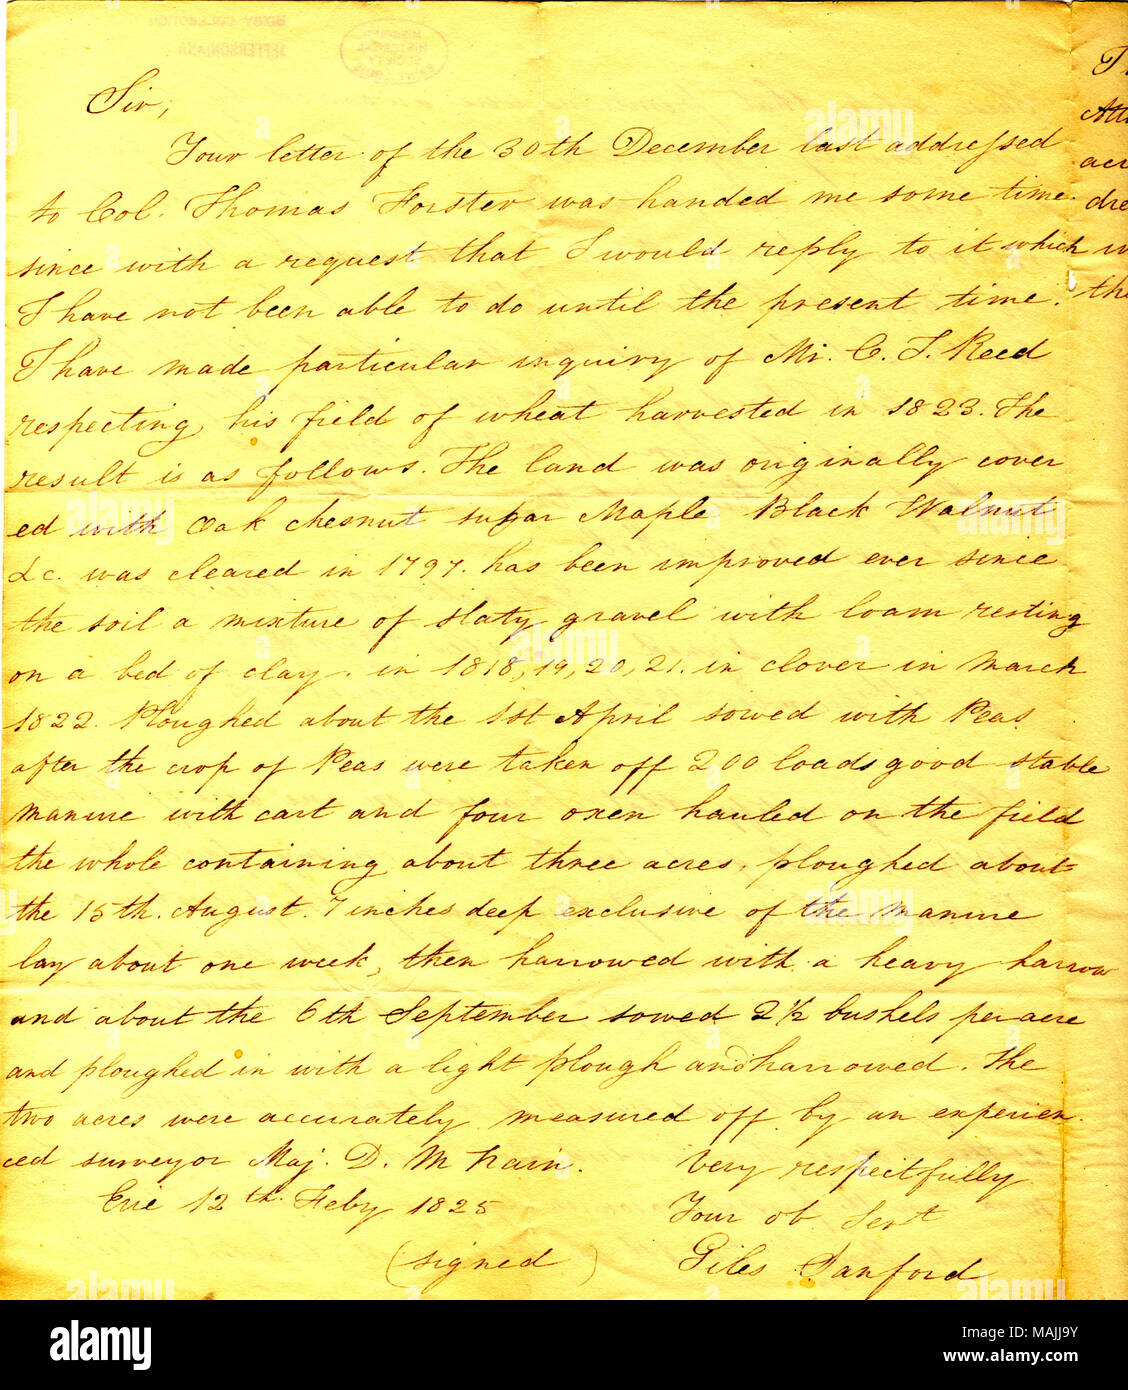 Sir,
Your letter of the 30th December last addressed
to Col. Thomas Forster was handed me some time
since with a request that I would reply to it which
I have not been able to do until the present time.
I have made particular inquiry of Mr. C. J. Reed
respecting his field of wheat harvested in 1823. The
result is as follows. The land was originally cover
ed with Oak chesnut sugar Maple Black Walnut
&c. was cleared in 1797. has been improved ever since
the soil a mixture of slaty gravel with loam resting
on a bed of clay. in 1818, 19, 20, 21. in clover in March
1822. Ploughed about the 1st April sowed with Peas
after the crop of Peas were taken off 200 loads good stable
manure with cart and four oxen hauled on the field
the whole containing about three acres. ploughed about
the 15th. August. 7 inches deep exclusive of the manure
lay about one week, then harrowed with a heavy harrow
and about the 6th September sowed 2 1/2 bushels per acre
and ploughed in with a light plough and harrowed. The
two acres were accurately measured off by an experien
ced surveyor Maj. D. M Nair. Very respectfully
Erie 12th. Feby 1825 Your ob Servt
(signed) Giles Sanford
alamy
Image ID: MAJJ9Y
www.alamy.com